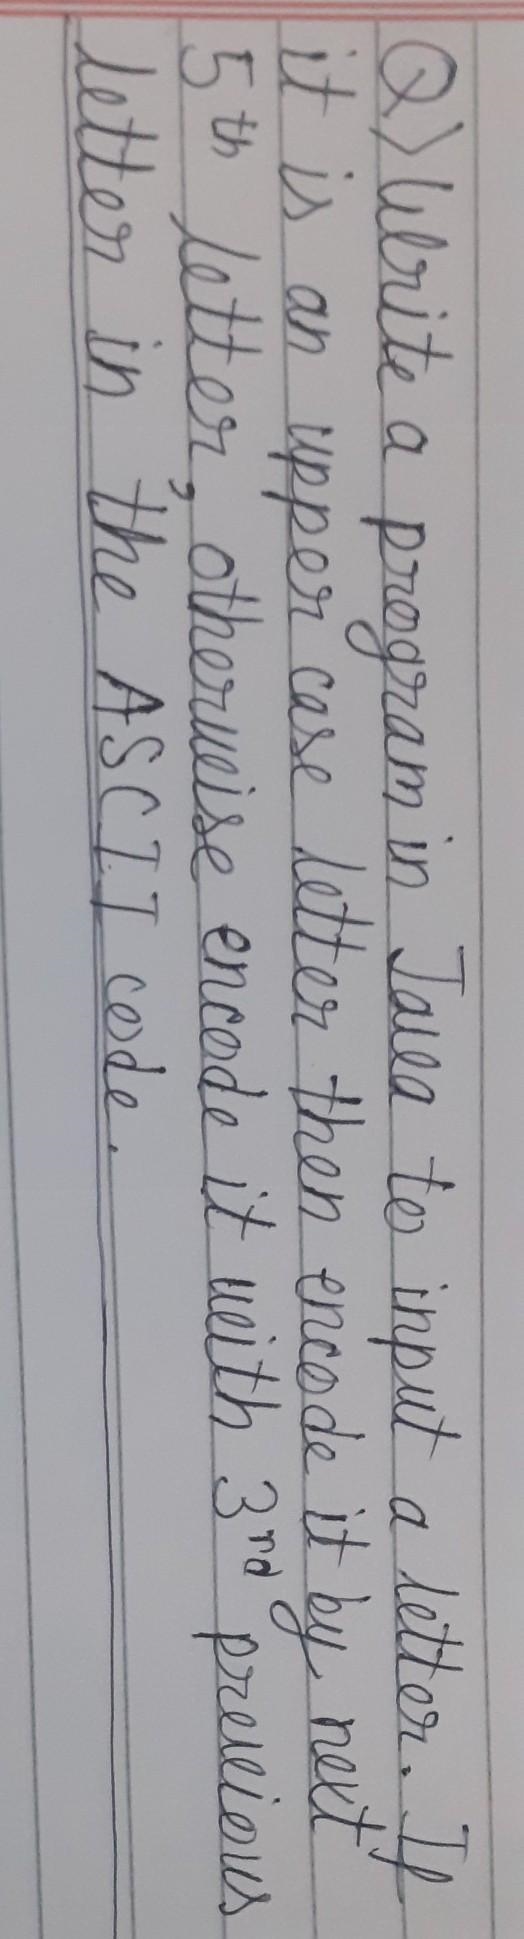 Q) Write a program in Java to input a letter. If
it is an upper case letter then encode it by next
5th letter, otherwise encode it with 3rd previous
letter in the ASCII code.